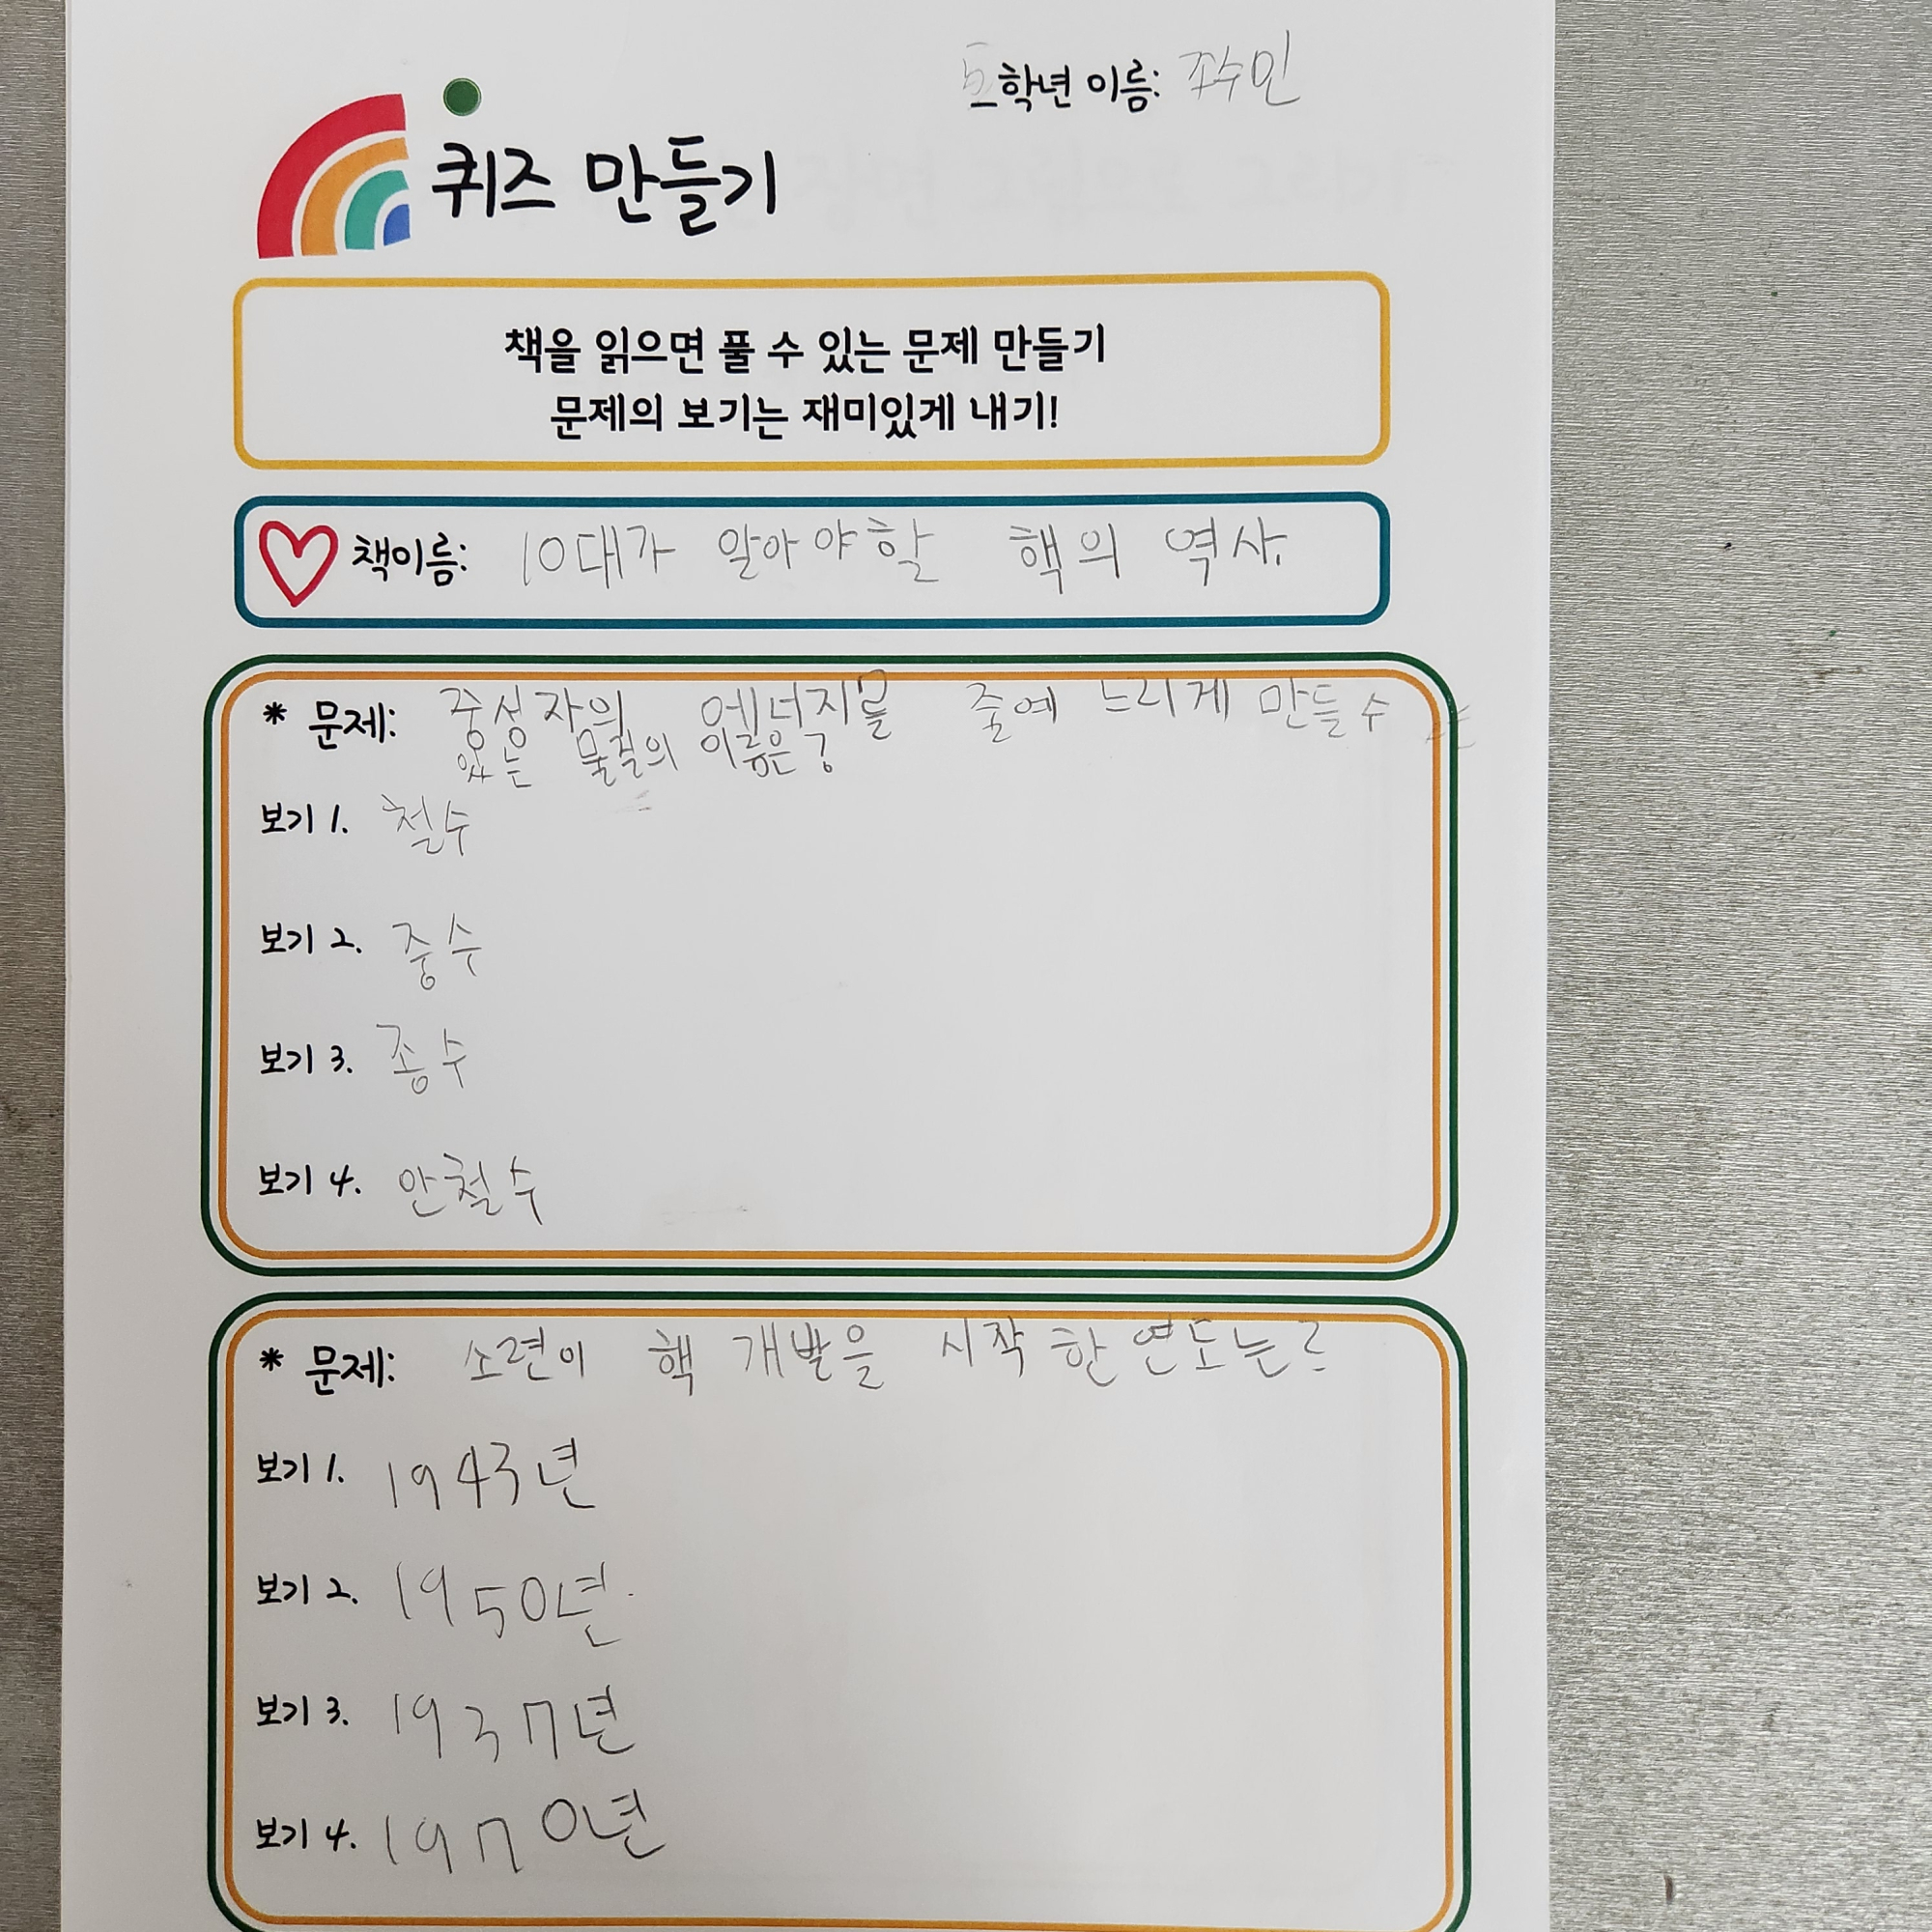 5학년 이름: 조수민
퀴즈 만들기
책을 읽으면 풀 수 있는 문제 만들기
문제의 보기는 재미있게 내기!
책이름: 10대가 알아야할 핵의 역사.
* 문제: 중성자의 에너지를 줄여 느리게 만들수
있는 물질의 이름은?
보기 1. 철수
보기 2. 중수
보기 3. 종수
보기 4. 안철수
* 문제: 소련이 핵 개발을 시작한 연도는?
보기 1. 1943년
보기 2. 1950년
보기 3. 1937년
보기 4. 1970년